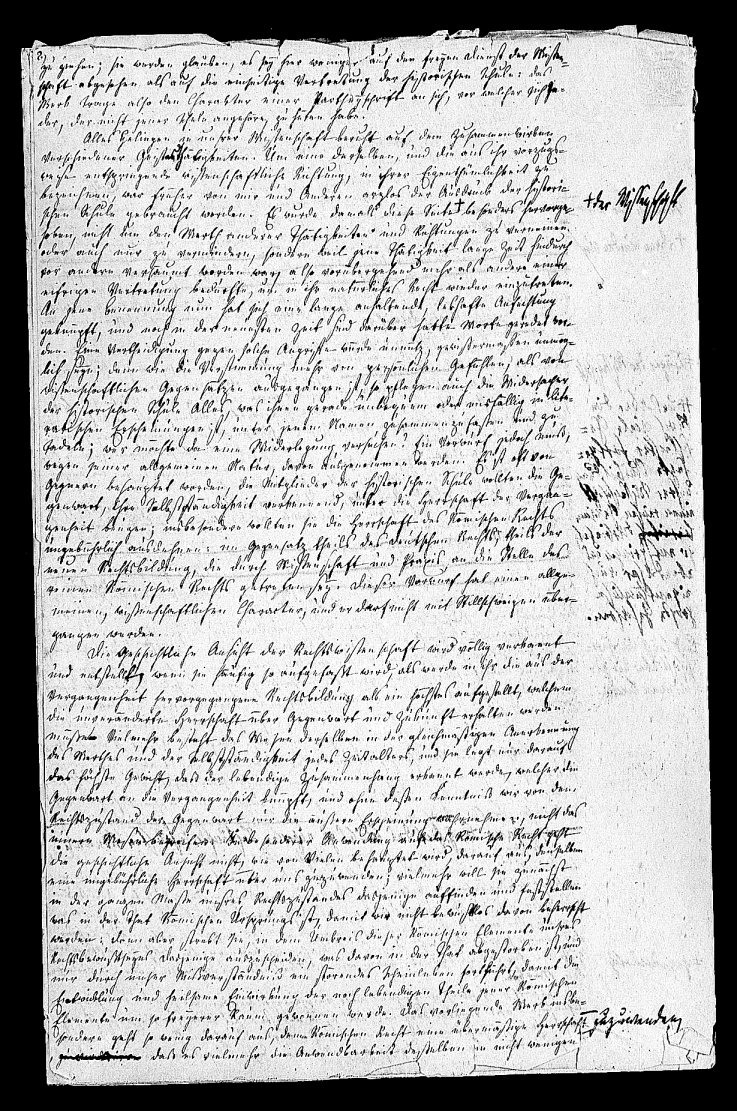 zu ziehen; sie werden glauben, es sey hier weniger auf den freyen Dienst der Wissen-
schaft abgesehen als auf die einseitige Vertretung der historischen Schule: das
Werk trage also den Charakter einer Partheyschrift an sich, vor welcher sich Je-
der, der nicht jener Schule angehöre, zu hüten habe.
Alles Gelingen in unsrer Wissenschaft beruht auf dem Zusammenwirken
verschiedener Geistesthätigkeiten. Um eine derselben, und die aus ihr vorzugs-
weise entspringende wissenschaftliche Richtung, in ihrer Eigenthümlichkeit zu
bezeichnen, war früher von mir und Anderen arglos der Ausdruck der histori-
schen Schule gebraucht worden. Es wurde damals diese Seite † besonders hervorge-
† der Wissenschaft
hoben, nicht um den Werth anderer Thätigkeiten und Richtungen zu verneinen
oder auch nur zu vermindern, sondern weil jene Thätigkeit lange Zeit hindurch
vor anderen versäumt worden war, also vorübergehend mehr als andere einer
eifrigen Vertretung bedurfte, um in ihr natürliches Recht wieder einzutreten.
An jene Benennung nun hat sich eine lange anhaltende, lebhafte Anfechtung
geknüpft, und noch in der neuesten Zeit sind darüber harte Worte geredet wor-
den. Eine Vertheidigung gegen solche Angriffe würde unnütz, gewissermaßen unmög-
lich seyn; denn wie die Verstimmung mehr von persönlichen Gefühlen, als von
wissenschaftlichen Gegensätzen ausgegangen ist, so pflegen auch die Widersacher
der historischen Schule Alles, was ihnen gerade unbequem oder misfällig in lite-
rarischen Erscheinungen ist, unter jenem Namen zusammenzufassen und zu
tadeln; wer möchte da eine Widerlegung versuchen? Ein Vorwurf jedoch muß,
wegen seiner allgemeineren Natur, davon ausgenommen werden. Es ist oft von
Gegnern behauptet worden, die Mitglieder der historischen Schule wollten die Ge-
genwart, ihre Selbstständigkeit verkennend, unter die Herrschaft der Vergan-
genheit beugen; insbesondere wollten sie die Herrschaft des Römischen Rechts
ungebührlich ausdehnen: im Gegensatz theils des Deutschen Rechts, theils der
neuen Rechtsbildung, die durch Wissenschaft und Praxis an die Stelle des
reinen Römischen Rechts getreten sey. Dieser Vorwurf hat einen allge-
meinen, wissenschaftlichen Character, und er darf nicht mit Stillschweigen über-
gangen werden.
Die geschichtliche Ansicht der Rechtswissenschaft wird völlig verkannt
und entstellt, wenn sie häufig so aufgefaßt wird, als werde in ihr die aus der
Vergangenheit hervorgegangene Rechtsbildung als ein höchstes aufgestellt, welchem
die unveränderte Herrschaft über Gegenwart und Zukunft erhalten werden
müsse. Vielmehr besteht das Wesen derselben in der gleichmäßigen Anerkennung
des Werthes und der Selbstständigkeit jedes Zeitalters, und sie legt nur darauf
das höchste Gewicht, daß der lebendige Zusammenhang erkannt werde, welcher die
Gegenwart an die Vergangenheit knüpft, und ohne dessen Kenntniß wir von dem
Rechtszustand der Gegenwart nur die äußere Erscheinung wahrnehmen, nicht das
innere Wesen begreifen. In besonderer Anwendung auf das Römische Recht geht
die geschichtliche Ansicht nicht, wie von Vielen behauptet wird, darauf aus, demselben
eine ungebührliche Herrschaft über uns zuzuwenden; vielmehr will sie zunächst
in der ganzen Masse unsres Rechtszustandes dasjenige auffinden und feststellen
was in der That Römischen Ursprungs ist, damit wir nicht bewußtlos davon beherrscht
werden: dann aber strebt sie, in dem Umkreis dieser Römischen Elemente unsres
Rechtsbewußtseyns dasjenige auszuscheiden, was davon in der That abgestorben ist, und
nur durch unser Misverständniß ein störendes Scheinleben fortführt, damit die
Entwicklung und heilsame Einwirkung der noch lebendigen Theile jener Römischen
Elemente um so freyerer Raum gewonnen werde. Das vorliegende Werk insbe-
sondere geht so wenig darauf aus, dem Römischen Recht eine übermäßige Herrschaft
zuzuwenden,
daß es vielmehr die Anwendbarkeit desselben in nicht wenigen